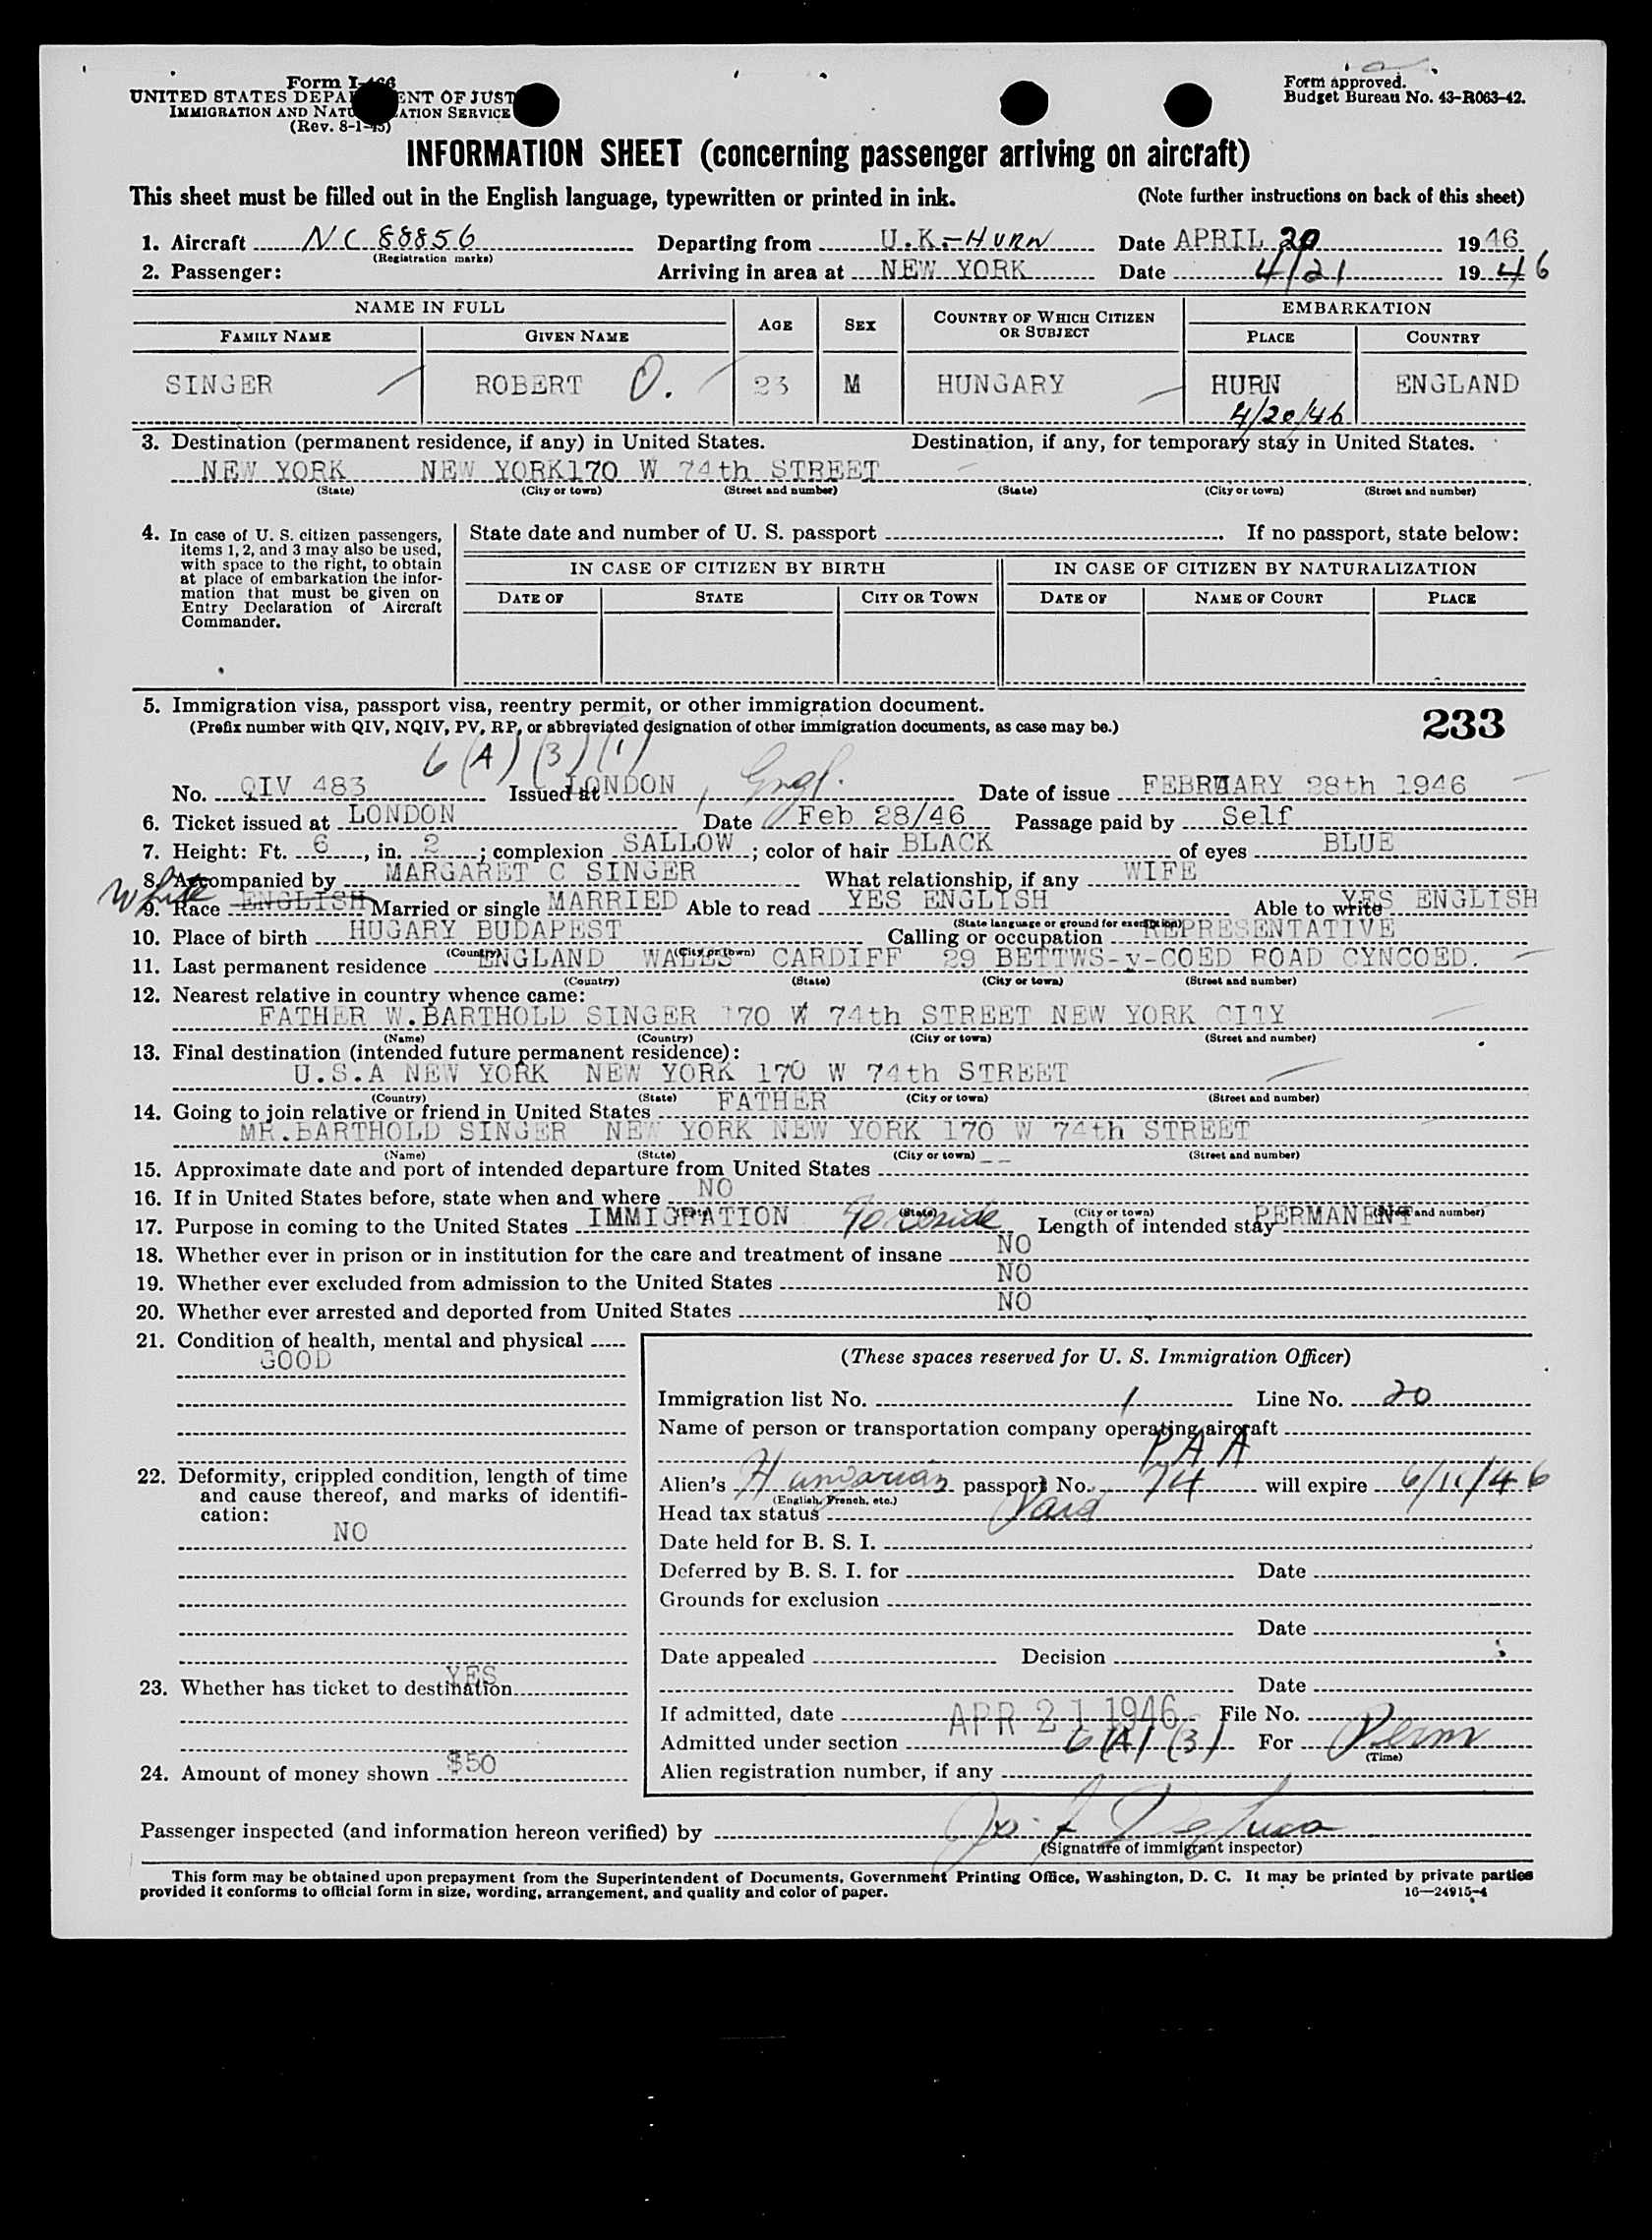 Form I-466
UNITED STATES DEPA ENT OF JUST
IMMIGRATION AND NATU ATION SERVICE
(Rev. 8-1-45)
Form approved.
Budget Bureau No. 43-R063-42.
INFORMATION SHEET (concerning passenger arriving on aircraft)
This sheet must be filled out in the English language, typewritten or printed in ink. (Note further instructions on back of this sheet)
1. Aircraft NC 88856 Departing from U.K.-HURN Date APRIL 20 1946
(Registration marks)
2. Passenger: Arriving in area at NEW YORK Date 4/21 1946
NAME IN FULL AGE SEX COUNTRY OF WHICH CITIZEN OR SUBJECT EMBARKATION
FAMILY NAME GIVEN NAME PLACE COUNTRY
SINGER ROBERT O. 23 M HUNGARY HURN ENGLAND
4/20/46
3. Destination (permanent residence, if any) in United States. Destination, if any, for temporary stay in United States.
NEW YORK NEW YORK170 W 74th STREET
(State) (City or town) (Street and number) (State) (City or town) (Street and number)
4. In case of U. S. citizen passengers,
items 1, 2, and 3 may also be used,
with space to the right, to obtain
at place of embarkation the infor-
mation that must be given on
Entry Declaration of Aircraft
Commander.
State date and number of U. S. passport . If no passport, state below:
IN CASE OF CITIZEN BY BIRTH IN CASE OF CITIZEN BY NATURALIZATION
DATE OF STATE CITY OR TOWN DATE OF NAME OF COURT PLACE
5. Immigration visa, passport visa, reentry permit, or other immigration document.
(Prefix number with QIV, NQIV, PV, RP, or abbreviated designation of other immigration documents, as case may be.)
233
6 (A) (3) (1)
No. QIV 483 Issued at LONDON, Engl. Date of issue FEBRUARY 28th 1946
6. Ticket issued at LONDON Date Feb 28/46 Passage paid by Self
7. Height: Ft. 6, in. 2; complexion SALLOW; color of hair BLACK of eyes BLUE
8. Accompanied by MARGARET C SINGER What relationship, if any WIFE
White
9. Race ENGLISH Married or single MARRIED Able to read YES ENGLISH Able to write YES ENGLISH
(State language or ground for exemption)
10. Place of birth HUGARY BUDAPEST Calling or occupation REPRESENTATIVE
(Country) (City or town)
11. Last permanent residence ENGLAND WALES CARDIFF 29 BETTWS-y-COED ROAD CYNCOED.
(Country) (State) (City or town) (Street and number)
12. Nearest relative in country whence came:
FATHER W.BARTHOLD SINGER 170 W 74th STREET NEW YORK CITY
(Name) (Country) (City or town) (Street and number)
13. Final destination (intended future permanent residence):
U.S.A NEW YORK NEW YORK 170 W 74th STREET
(Country) (State) (City or town) (Street and number)
14. Going to join relative or friend in United States FATHER
MR.BARTHOLD SINGER NEW YORK NEW YORK 170 W 74th STREET
(Name) (State) (City or town) (Street and number)
15. Approximate date and port of intended departure from United States
16. If in United States before, state when and where NO
(State) (City or town) (Street and number)
17. Purpose in coming to the United States IMMIGRATION To reside Length of intended stay PERMANENT
18. Whether ever in prison or in institution for the care and treatment of insane NO
19. Whether ever excluded from admission to the United States NO
20. Whether ever arrested and deported from United States NO
21. Condition of health, mental and physical
GOOD
22. Deformity, crippled condition, length of time
and cause thereof, and marks of identifi-
cation:
NO
23. Whether has ticket to destination YES
24. Amount of money shown $50
(These spaces reserved for U. S. Immigration Officer)
Immigration list No. 1 Line No. 20
Name of person or transportation company operating aircraft
P A A
Alien's Hungarian passport No. 74 will expire 6/11/46
(English, French, etc.)
Head tax status Paid
Date held for B. S. I.
Deferred by B. S. I. for Date
Grounds for exclusion
Date
Date appealed Decision
Date
If admitted, date APR 21 1946 File No.
Admitted under section 6 (A) (3) For Perm
(Time)
Alien registration number, if any
Passenger inspected (and information hereon verified) by
(Signature of immigrant inspector)
This form may be obtained upon prepayment from the Superintendent of Documents, Government Printing Office, Washington, D. C. It may be printed by private parties
provided it conforms to official form in size, wording, arrangement, and quality and color of paper. 16—24915-4